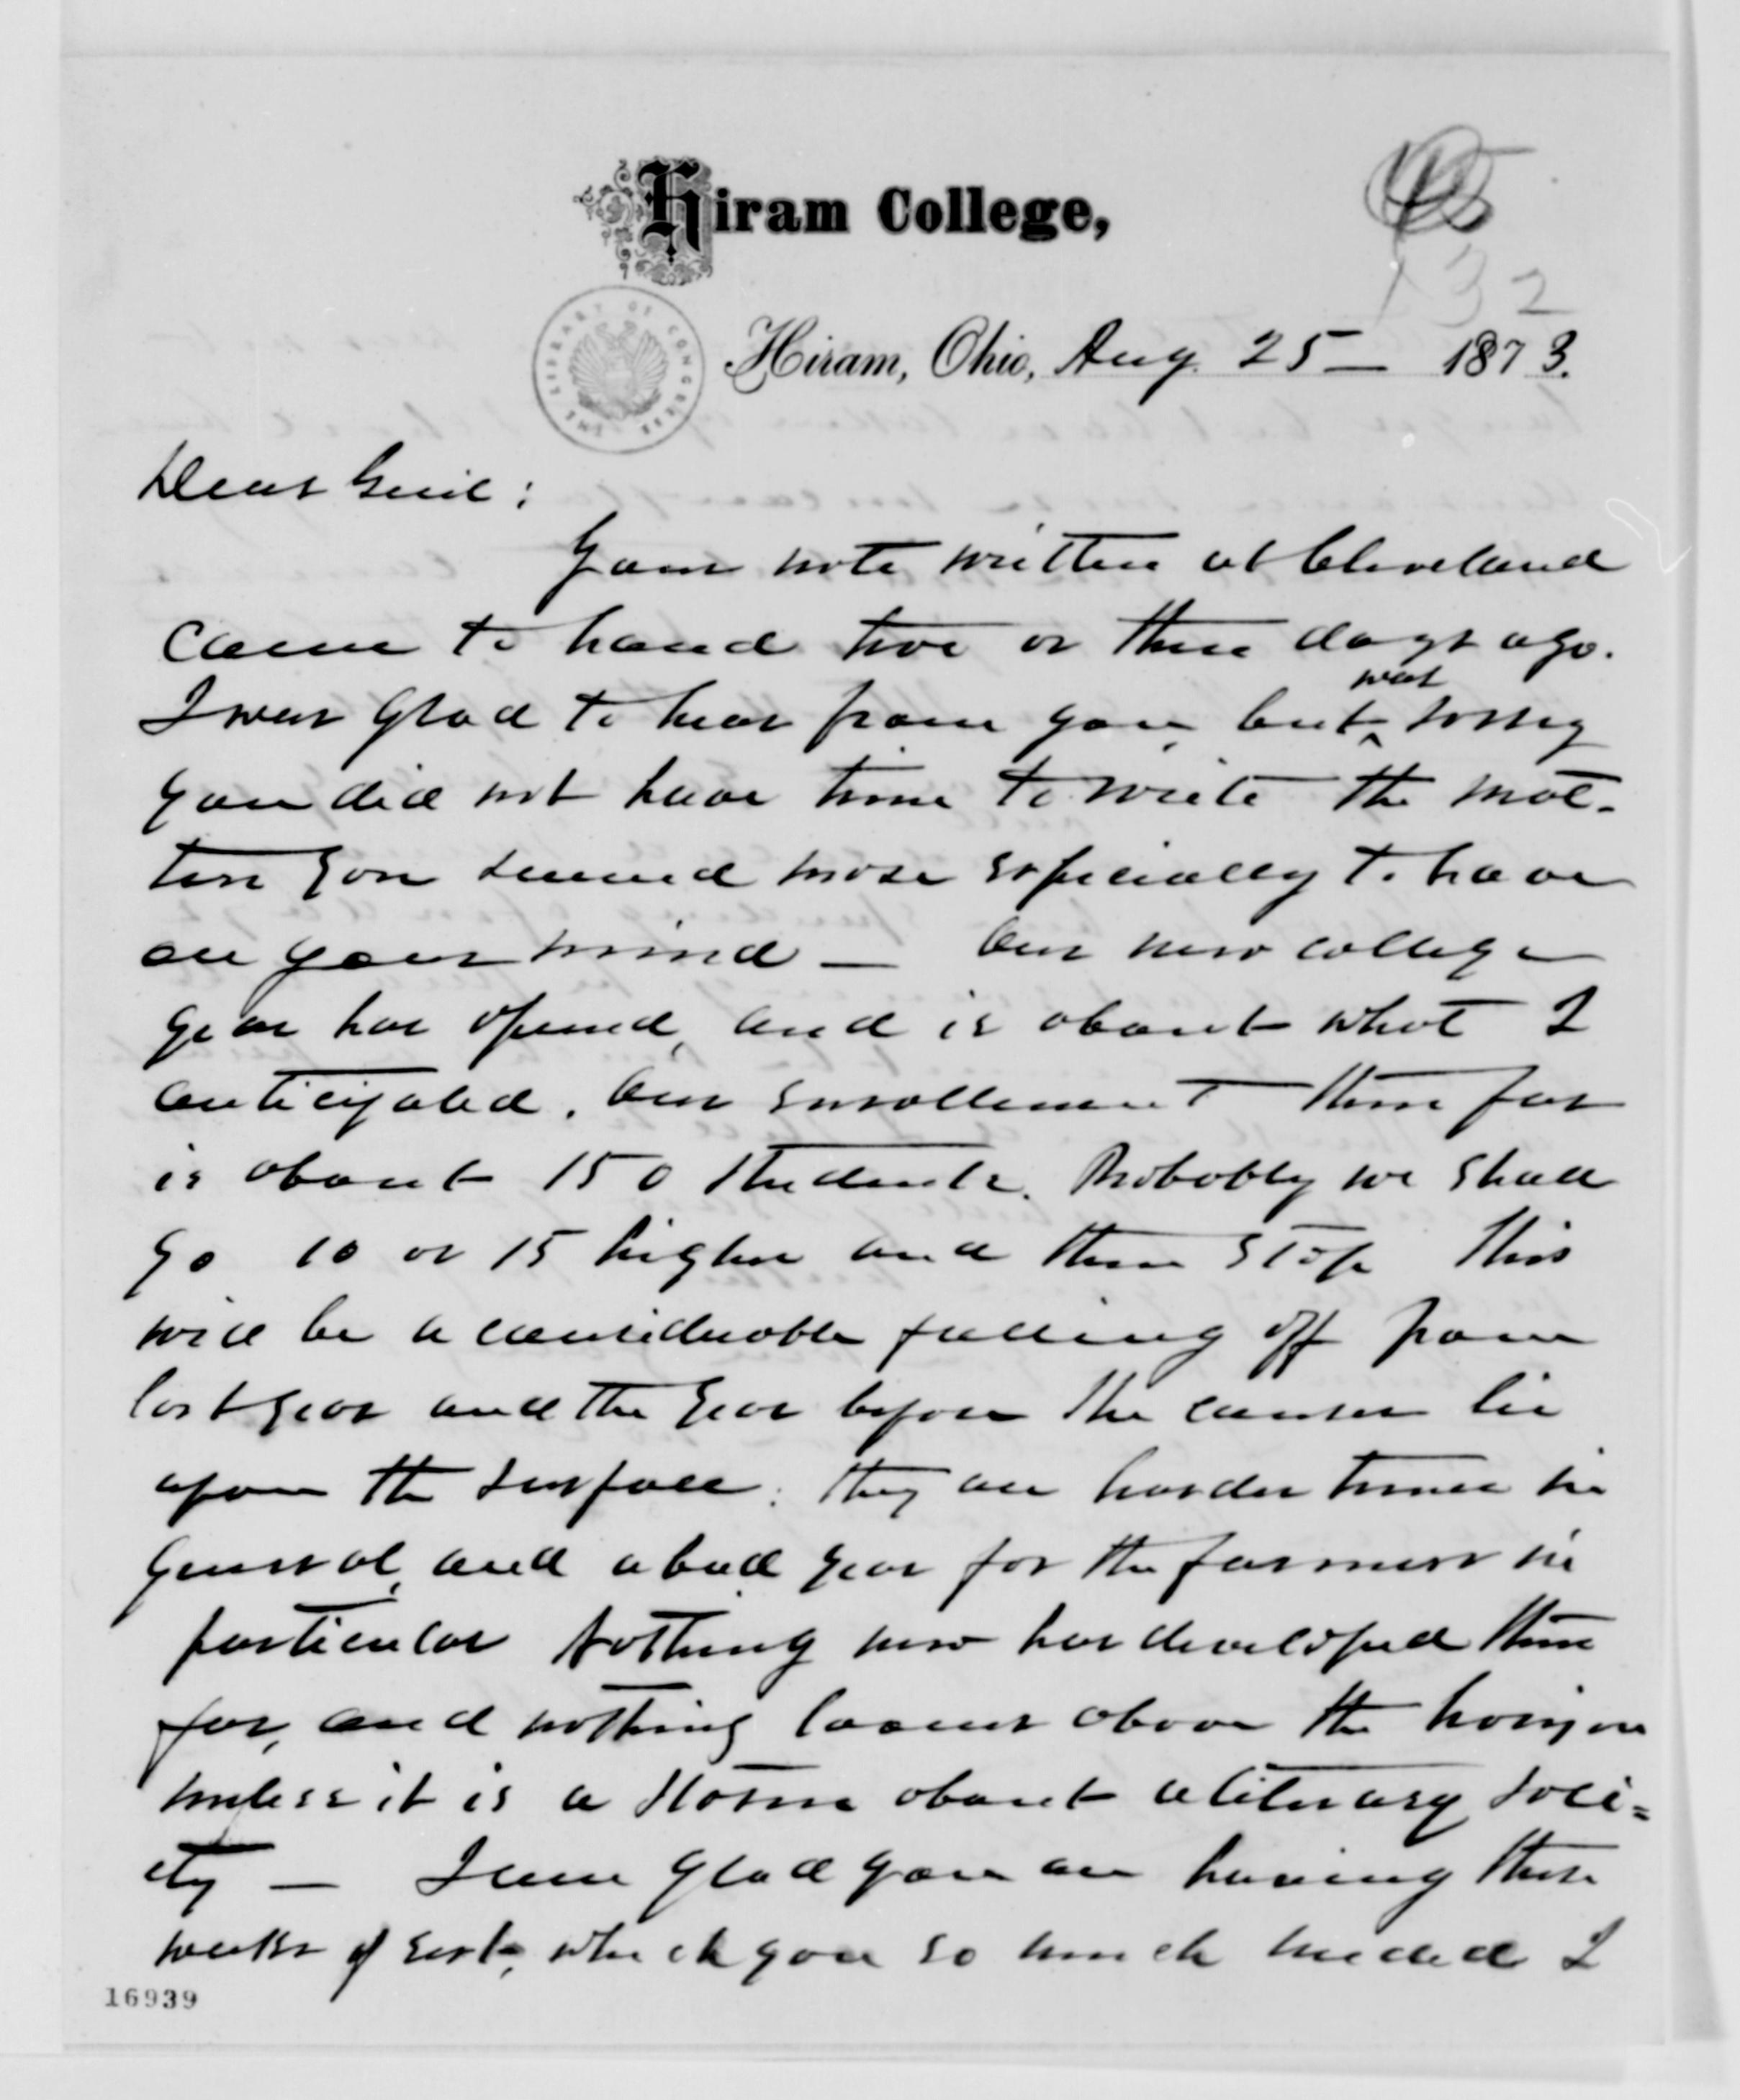 Hiram College,
132
THE LIBRARY OF CONGRESS
Hiram, Ohio, Aug. 25 — 1873.
Dear Genl:
Your note written at Cleveland
came to hand two or three days ago.
was
I was glad to hear from you, but ^ sorry
you did not have time to write the mat-
ters you seemed most especially to have
on your mind — Our new college
year has opened, and is about what I
anticipated. Our enrollment thus far
is about 150 students. Probably we shall
go 10 or 15 higher and then stop This
will be a considerable falling off from
last year and the year before The causes lie
upon the surface: they are harder times in
general, and a bad year for the farmers in
particular Nothing new has developed thus
far, and nothing looms above the horizon
unless it is a storm about a literary soci=
ety — I am glad you are having these
weeks of rest, which you so much needed I
16939